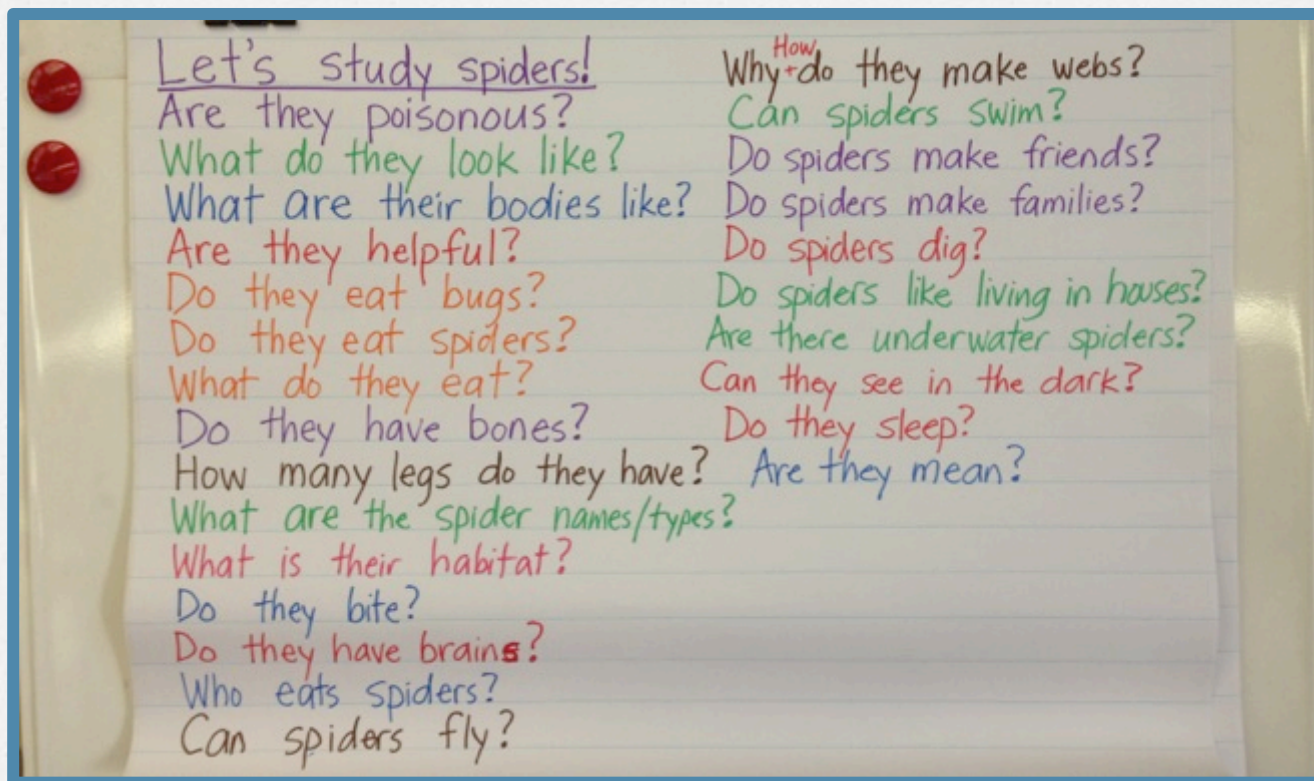 Let's study spiders!
Are they poisonous?
What do they look like?
What are their bodies like?
Are they helpful?
Do they eat bugs?
Do they eat spiders?
What do they eat?
Do they have bones?
How many legs do they have?
What are the spider names/types?
What is their habitat?
Do they bite?
Do they have brains?
Who eats spiders?
Can spiders fly?
Why + How do they make webs?
Can spiders swim?
Do spiders make friends?
Do spiders make families?
Do spiders dig?
Do spiders like living in houses?
Are there underwater spiders?
Can they see in the dark?
Do they sleep?
Are they mean?